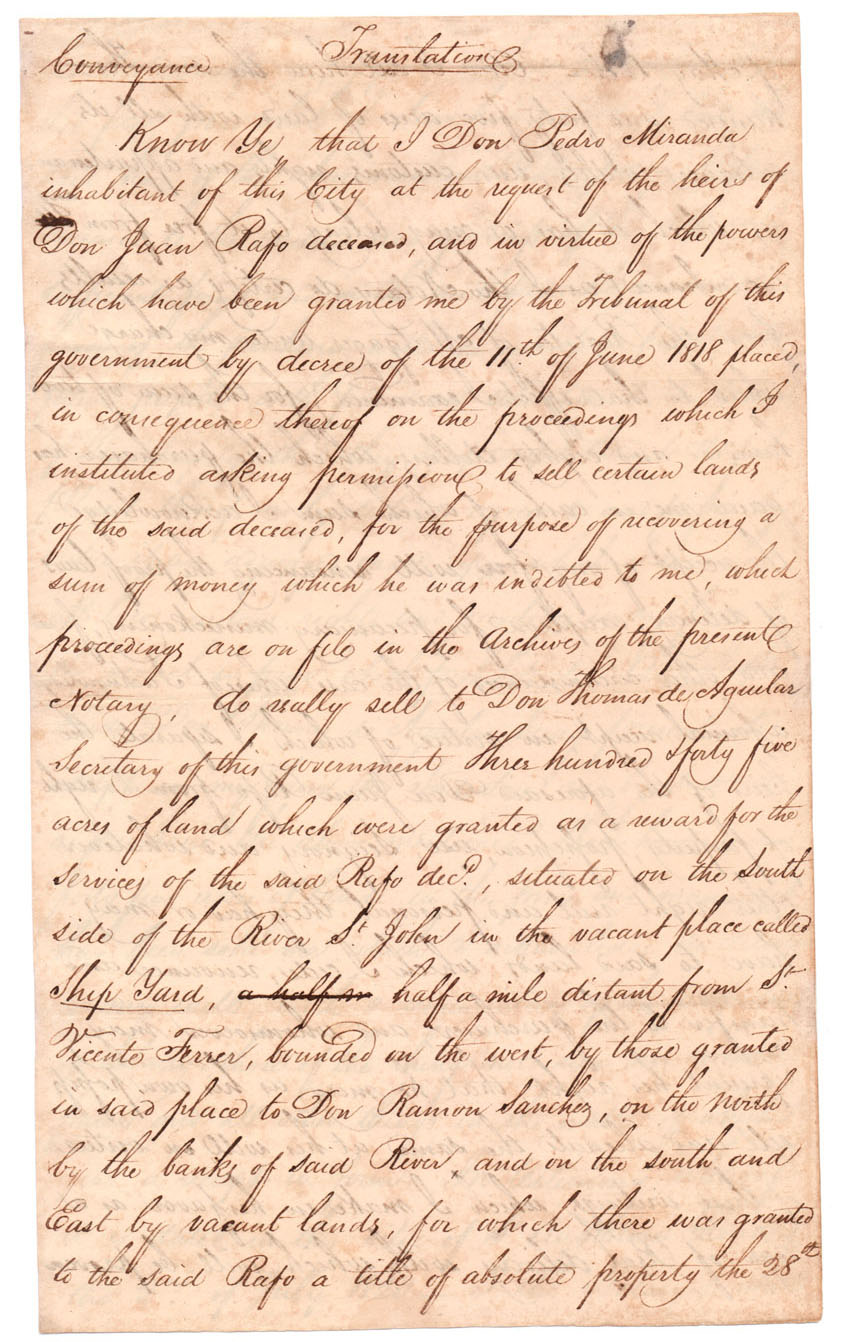 Conveyance Translation
Know Ye that I Don Pedro Miranda
inhabitant of this City at the request of the heirs of
Don Juan Rafo deceased, and in virtue of the powers
which have been granted me by the Tribunal of this
government by decree of the 11th. of June 1818 placed,
in consequence thereof on the proceedings which I
instituted asking permission to sell certain lands
of the said deceased, for the purpose of recovering a
sum of money which he was indebted to me, which
proceedings are on file in the Archives of the present
Notary, do really sell to Don Thomas de Aguilar
Secretary of this government Three hundred & forty five
acres of land which were granted as a reward for the
services of the said Rafo decd., situated on the South
side of the River St. John in the vacant place called
Ship Yard, a half m half a mile distant from St.
Vicente Ferrer, bounded on the west, by those granted
in said place to Don Ramon Sanchez, on the north
by the banks of said River, and on the south and
East by vacant lands, for which there was granted
to the said Rafo a title of absolute property the 28th